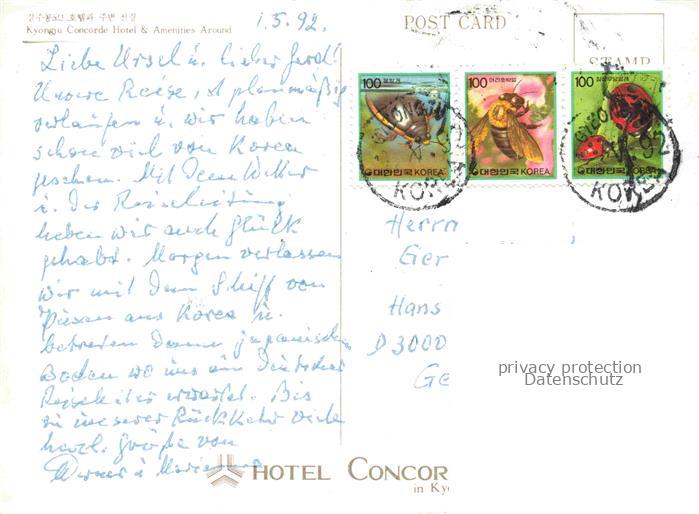 경주콩코드 호텔과 주변 전경
Kyongju Concorde Hotel & Amenities Around
1.5.92.
POST CARD
STAMP
Liebe Ursel u. lieber Gerd!
Unsere Reise ist planmäßig
verlaufen u. wir haben
schon viel von Korea
gesehen. Mit dem Wetter
u. der Reiseleitung
haben wir auch Glück
gehabt. Morgen verlassen
wir mit dem Schiff von
Pusan aus Korea u.
betreten dann japanischen
Boden wo uns ein Deutscher
Reiseleiter erwartet. Bis
zu unserer Rückkehr viele
herzl. Grüße von
Werner u. Marianne
100
100
100
대한민국 KOREA
대한민국 KOREA
대한민국 KOREA
KOREA
KOREA
Herrn
Ger
Hans
D 3000
Ge
privacy protection
Datenschutz
HOTEL CONCOR
in Kyo